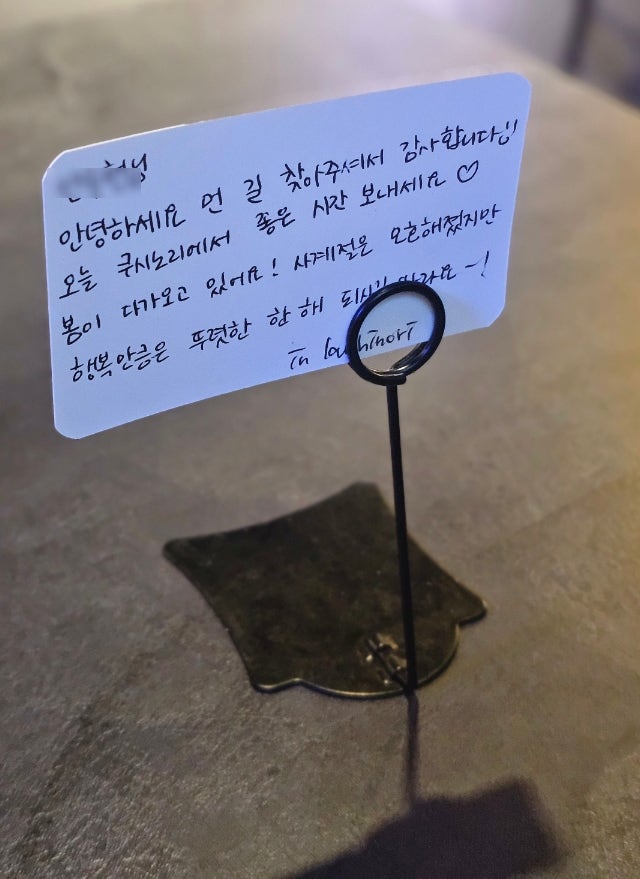 안녕하세요 먼 길 찾아주셔서 감사합니다!!
오늘 쿠시노리에서 좋은 시간 보내세요 ♡
봄이 다가오고 있어요! 사계절은 모호해졌지만
행복만큼은 뚜렷한 한 해 되시길 바라요 ~!
in